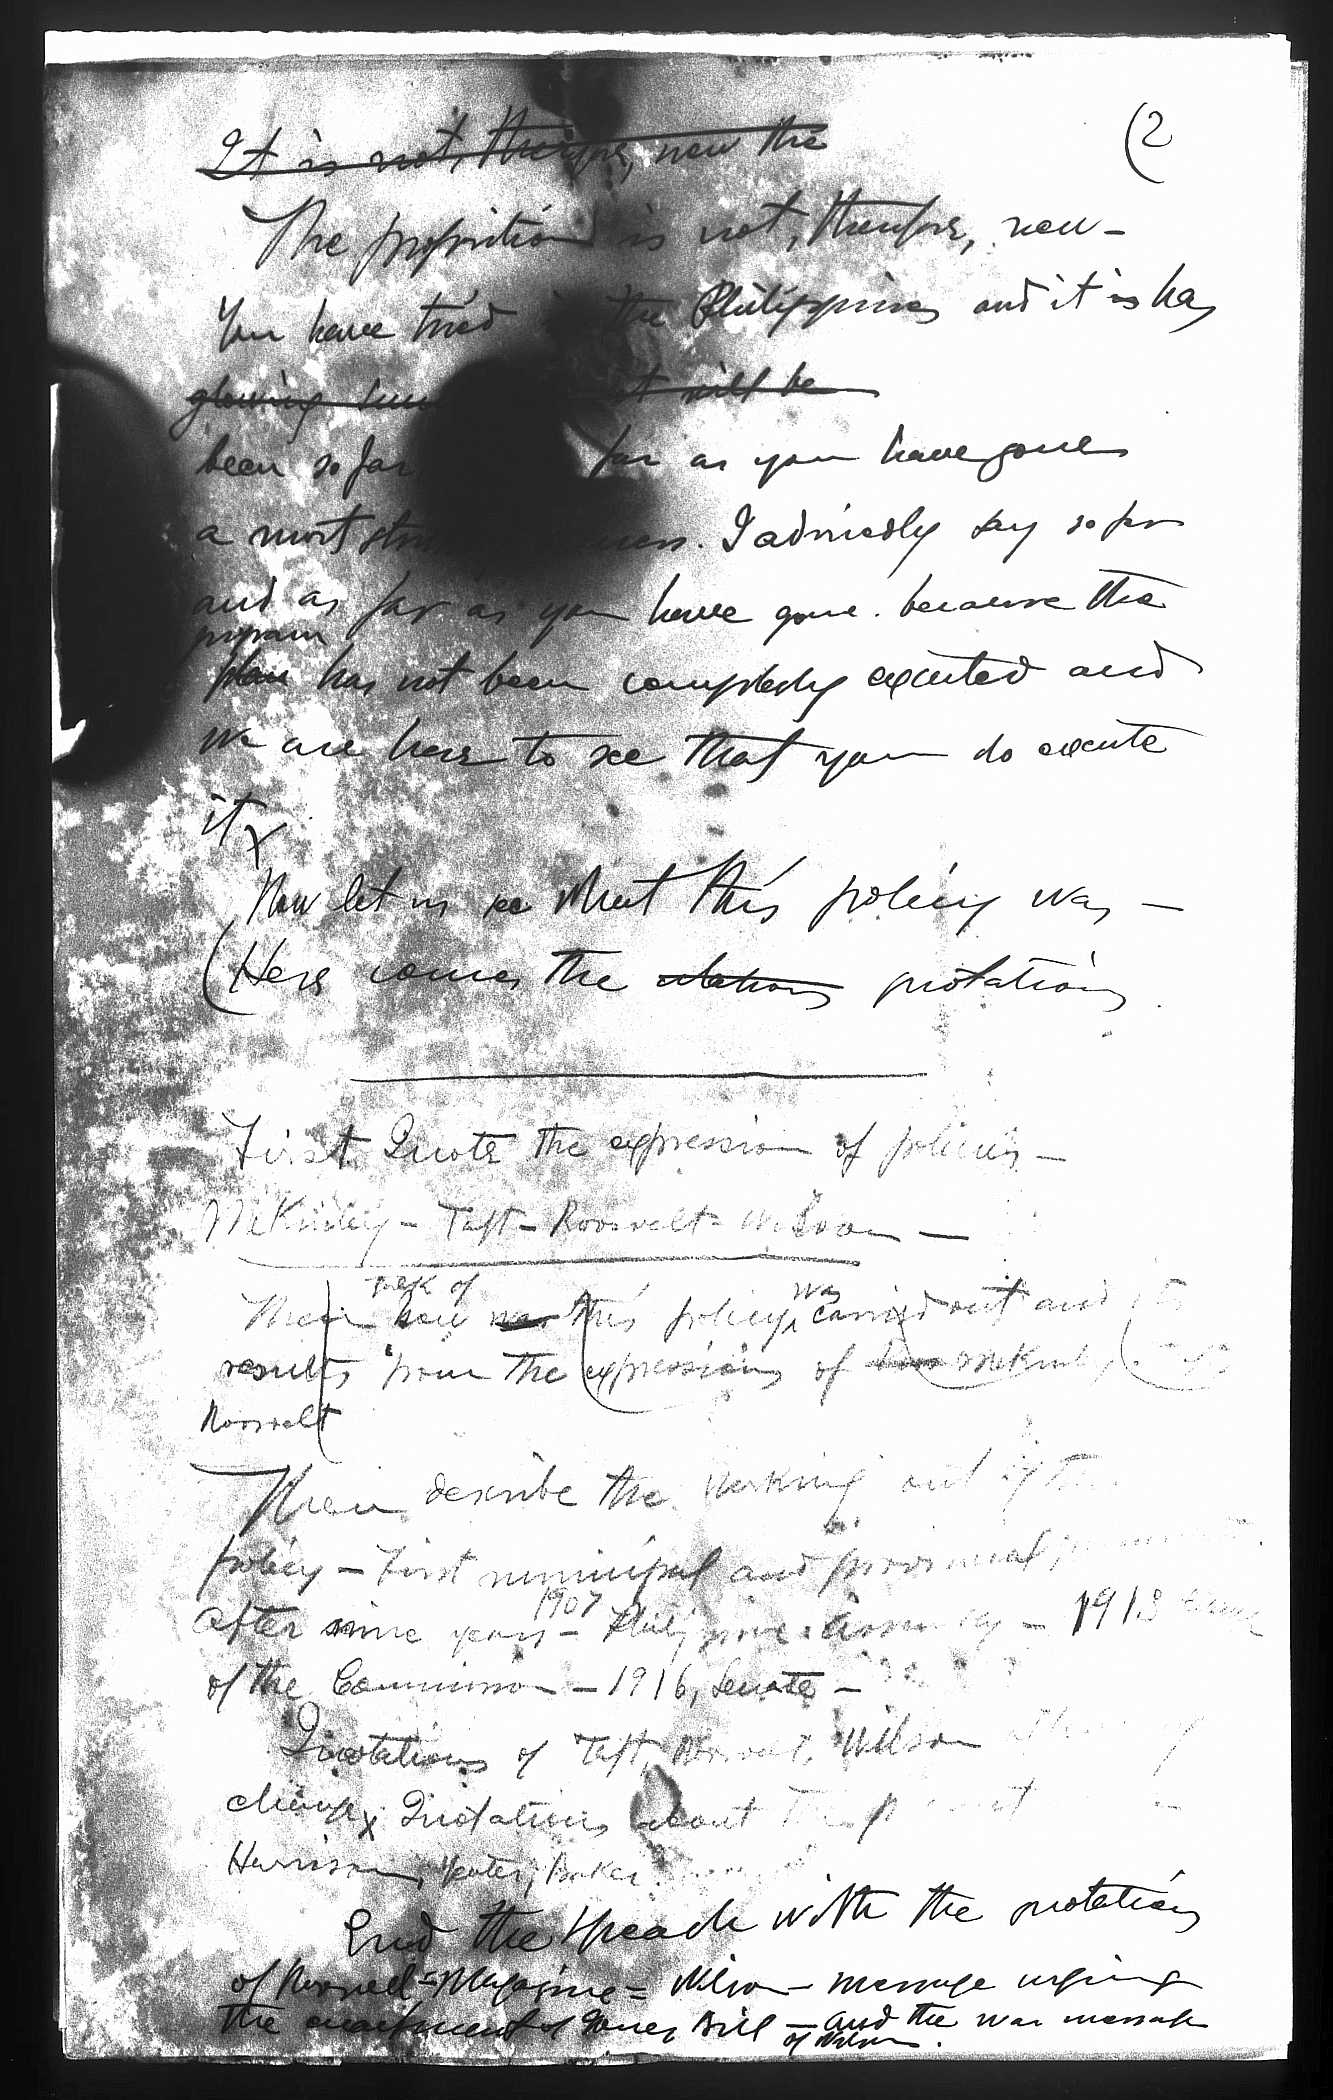 (2
It is not, therefore, new the
The proposition is not, therefore, new –
You have tried the Philippines and it is has
glowing it will be
been so far far as you have gone
a most . I advisedly say so far
and as far as you have gone. because the
program
plan has not been completely executed and
we are here to see that you do execute
it
Now let us see what this policy was –
(Here comes the quotations.
First Quote the expression of policies –
McKinley – Taft – Roosevelt – Wilson –
speak of
Then how was this policy was carried out and its
results from the expressions of McKinley
Roosevelt
Then describe the working out of the
policy – First municipal and provincial
After nine years – 1907 Philippine Assembly – 1913
of the Commission – 1916, Senate –
Quotations of Taft, Roosevelt, Wilson
change Quotations about the
Harrison, Yeater, Baker
End the speach with the quotations
of Roosevelt – Magazine – Wilson – message urging
the enactment of Jones Bill – and the war message
of Wilson.